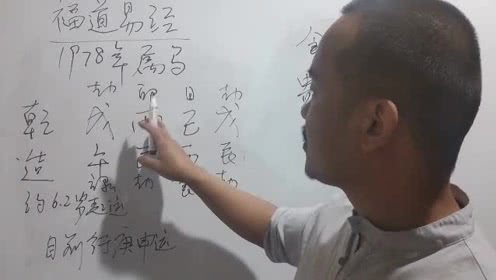 福道易经
1978年属马
劫 印 日 劫
乾 戊 丙 己 戊
造 午 辰
禄 劫 劫
约6.2岁起运
目前行庚申运
金